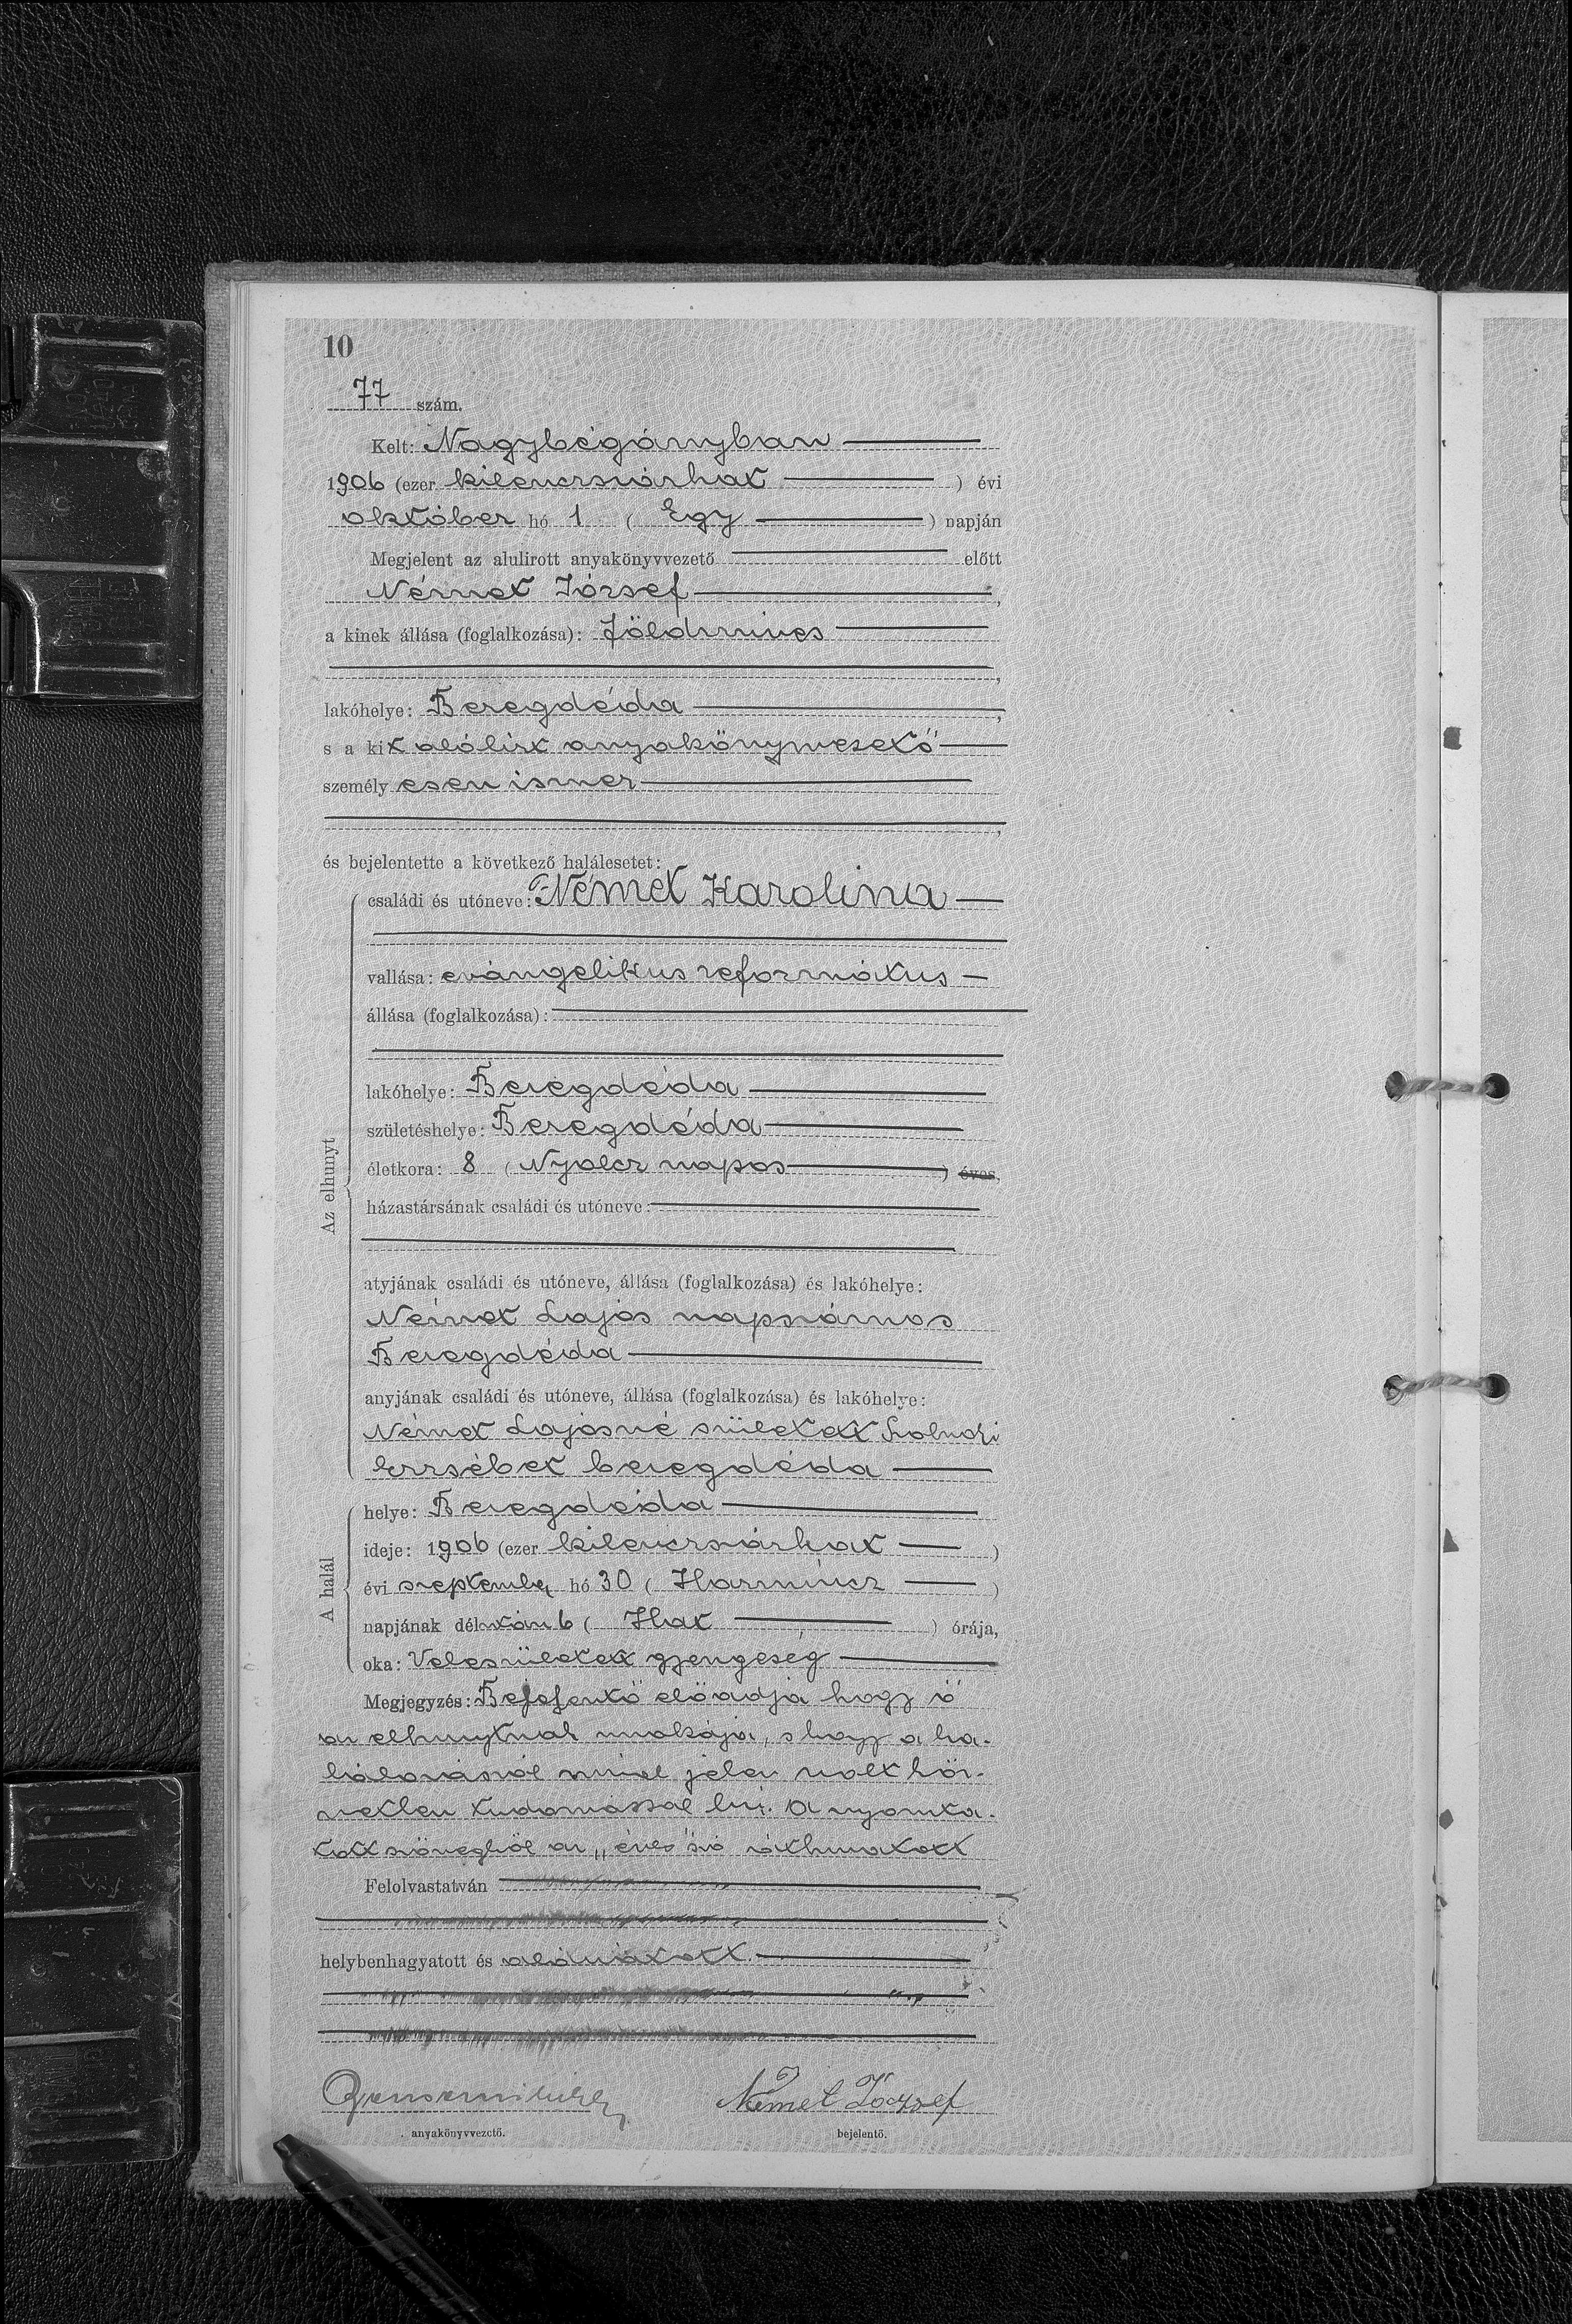 10
77 szám.
Kelt: Nagybégányban
1906 (ezer kilencszázhat ) évi
október hó 1 ( Egy ) napján
Megjelent az alulirott anyakönyvvezető előtt
Német József ,
a kinek állása (foglalkozása): Földmives
,
lakóhelye: Beregdéda ,
s a kit alólirt anyakönyvvezető
személyesen ismer
,
és bejelentette a következő halálesetet:
Az elhunyt
családi és utóneve: Német Karolina
vallása: evángelikus református
állása (foglalkozása):
lakóhelye: Beregdéda
születéshelye: Beregdéda
életkora: 8 ( Nyolcz napos ) éves,
házastársának családi és utóneve:
atyjának családi és utóneve, állása (foglalkozása) és lakóhelye:
Német Lajos napszámos
Beregdéda
anyjának családi és utóneve, állása (foglalkozása) és lakóhelye:
Német Lajosné született
Erzsébet beregdéda
A halál
helye: Beregdéda
ideje: 1906 (ezer kilencszázhat )
évi szeptember hó 30 ( Harmincz )
napjának délután 6 ( Hat ) órája,
oka: Veleszületett gyengeség
Megjegyzés: Bejelentő előadja hogy ő
az elhunytnak unokája, s hogy a ha-
lálozásnál mivel jelen volt köz-
vetlen tudomással bir. A nyomta-
tott szövegből az „éves" szó
Felolvastatván
helybenhagyatott és aláíratott.
Német József
anyakönyvvezető. bejelentő.